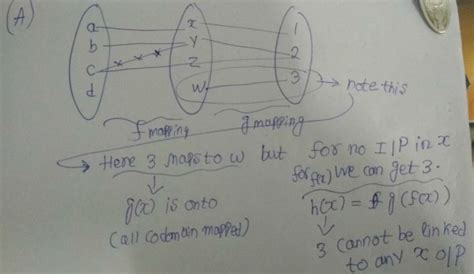 (A)
a x 1
b y 2
c z 3
d w → note this
f mapping g mapping
Here 3 maps to w but for no I/P in x
for f(x) we can get 3.
g(x) is onto
(all codomain mapped)
h(x) = g(f(x))
3 cannot be linked
to any x O/P